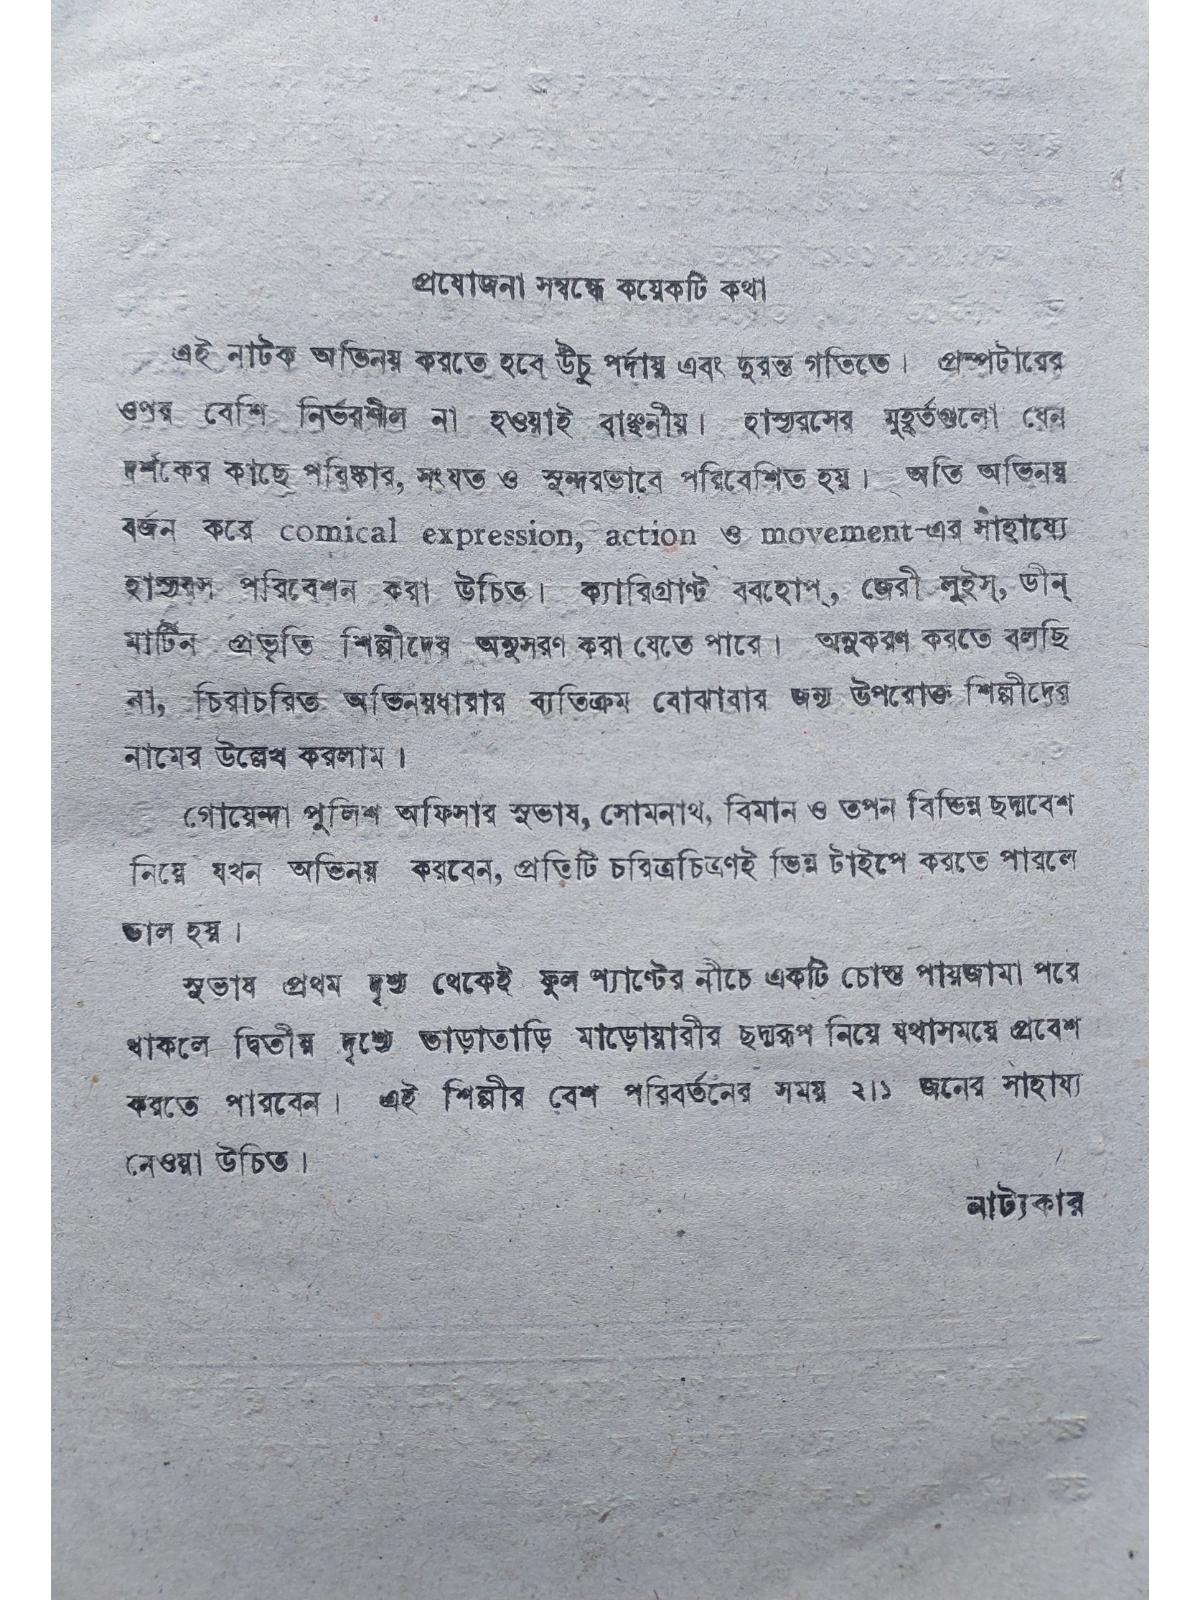 প্রযোজনা সম্বন্ধে কয়েকটি কথা
এই নাটক অভিনয় করতে হবে উঁচু পর্দায় এবং দুরন্ত গতিতে। প্রম্পটারের
ওপর বেশি নির্ভরশীল না হওয়াই বাঞ্ছনীয়। হাস্যরসের মুহূর্তগুলো যেন
দর্শকের কাছে পরিষ্কার, সংযত ও সুন্দরভাবে পরিবেশিত হয়। অতি অভিনয়
বর্জন করে comical expression, action ও movement-এর সাহায্যে
হাস্যরস পরিবেশন করা উচিত। ক্যারিগ্রান্ট ববহোপ্, জেরী লুইস্, ডীন্
মার্টিন প্রভৃতি শিল্পীদের অনুসরণ করা যেতে পারে। অনুকরণ করতে বলছি
না, চিরাচরিত অভিনয়ধারার ব্যতিক্রম বোঝাবার জন্য উপরোক্ত শিল্পীদের
নামের উল্লেখ করলাম।
গোয়েন্দা পুলিশ অফিসার সুভাষ, সোমনাথ, বিমান ও তপন বিভিন্ন ছদ্মবেশ
নিয়ে যখন অভিনয় করবেন, প্রতিটি চরিত্রচিত্রণই ভিন্ন টাইপে করতে পারলে
ভাল হয়।
সুভাষ প্রথম দৃশ্য থেকেই ফুল প্যাণ্টের নীচে একটি চোস্ত পায়জামা পরে
থাকলে দ্বিতীয় দৃশ্যে তাড়াতাড়ি মাড়োয়ারীর ছদ্মরূপ নিয়ে যথাসময়ে প্রবেশ
করতে পারবেন। এই শিল্পীর বেশ পরিবর্তনের সময় ২।১ জনের সাহায্য
নেওয়া উচিত।
নাট্যকার